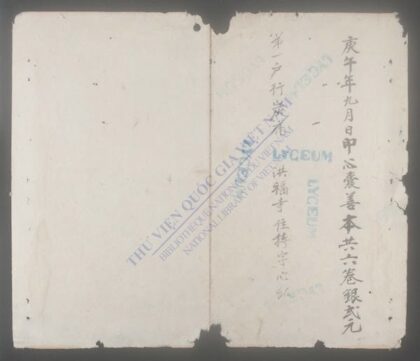 庚午年九月日印心囊善本共六卷銀弍元
第一戶行炭庯洪福寺住持字心
LYCEUM
LYCEUM
THƯ VIỆN QUỐC GIA VIỆT NAM
BIBLIOTHEQUE NATIONALE DU VIETNAM
NATIONAL LIBRARY OF VIETNAM